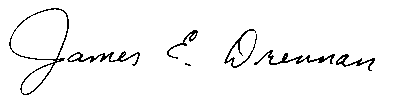 James E. Drennan